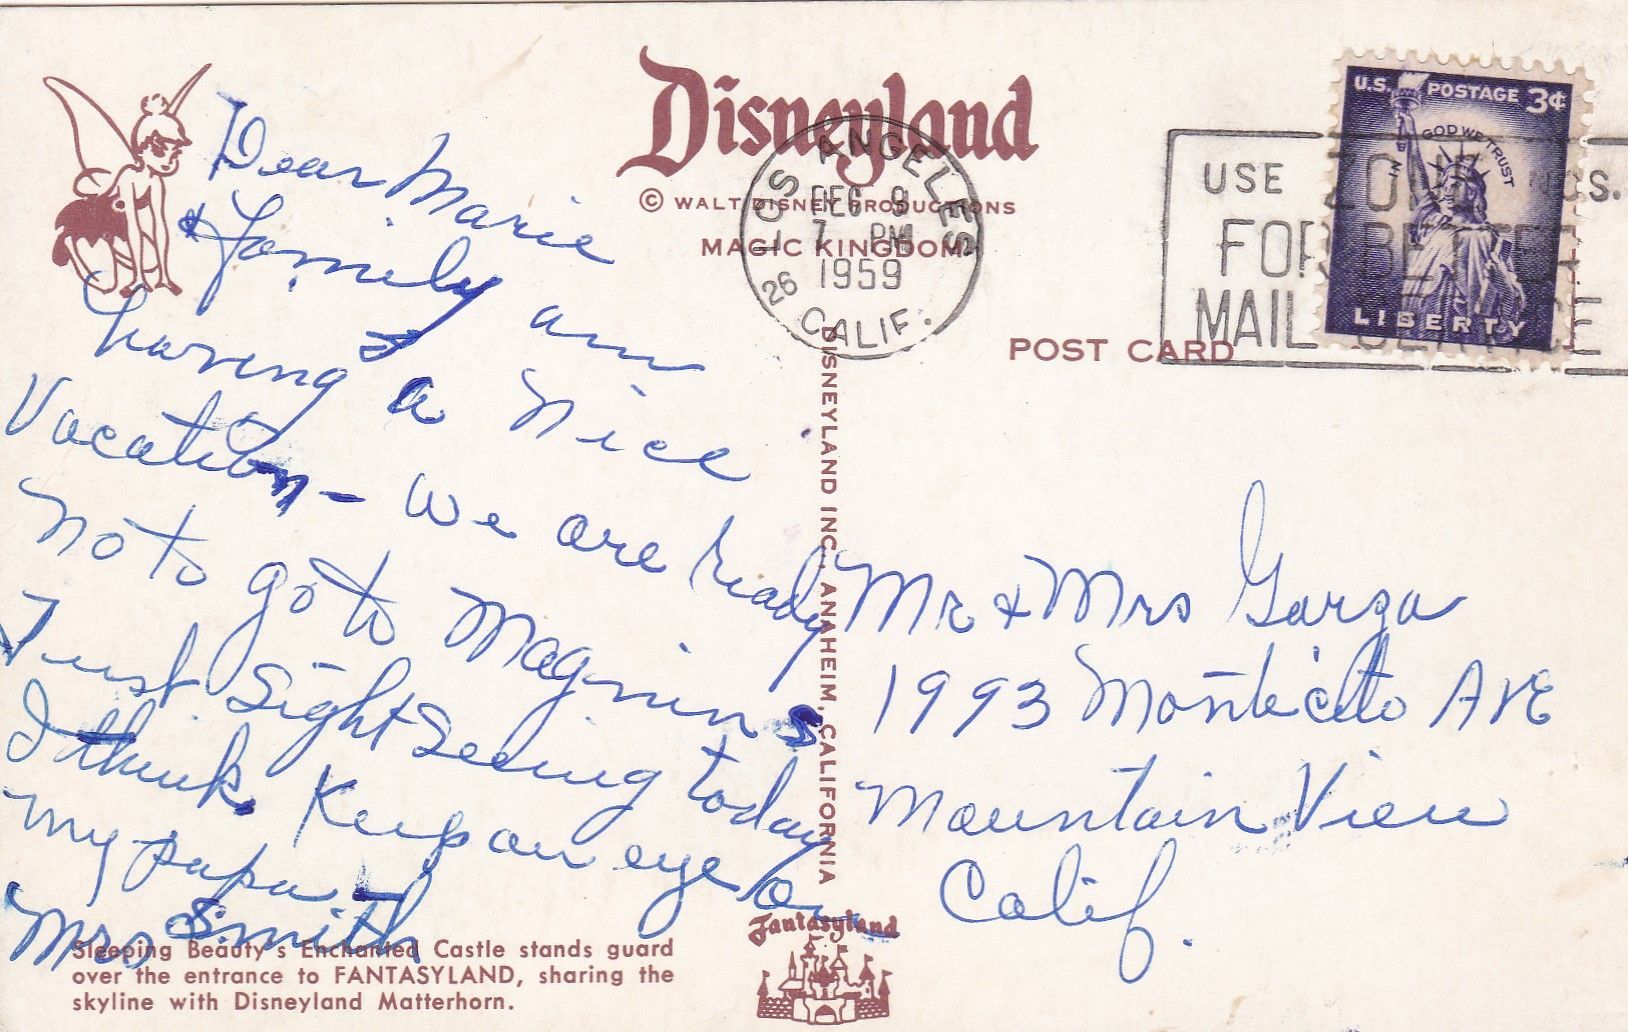 Disneyland
© WALT DISNEY PRODUCTIONS
MAGIC KINGDOM
POST CARD
LOS ANGELES
DEC 8
7 PM
1959
26 CALIF.
USE ZONE NOS.
FOR BETTER
MAIL SERVICE
U.S. POSTAGE 3¢
IN GOD WE TRUST
LIBERTY
Dear Marie
& Family am
having a nice
Vacation – We are ready
not to go to Magnins
Just Sight Seeing today
I think. Keep an eye on
my papa
Mrs Smith
DISNEYLAND INC., ANAHEIM, CALIFORNIA
Mr & Mrs Garza
1993 Montecito AVE
Mountain View
Calif.
Sleeping Beauty's Enchanted Castle stands guard
over the entrance to FANTASYLAND, sharing the
skyline with Disneyland Matterhorn.
Fantasyland